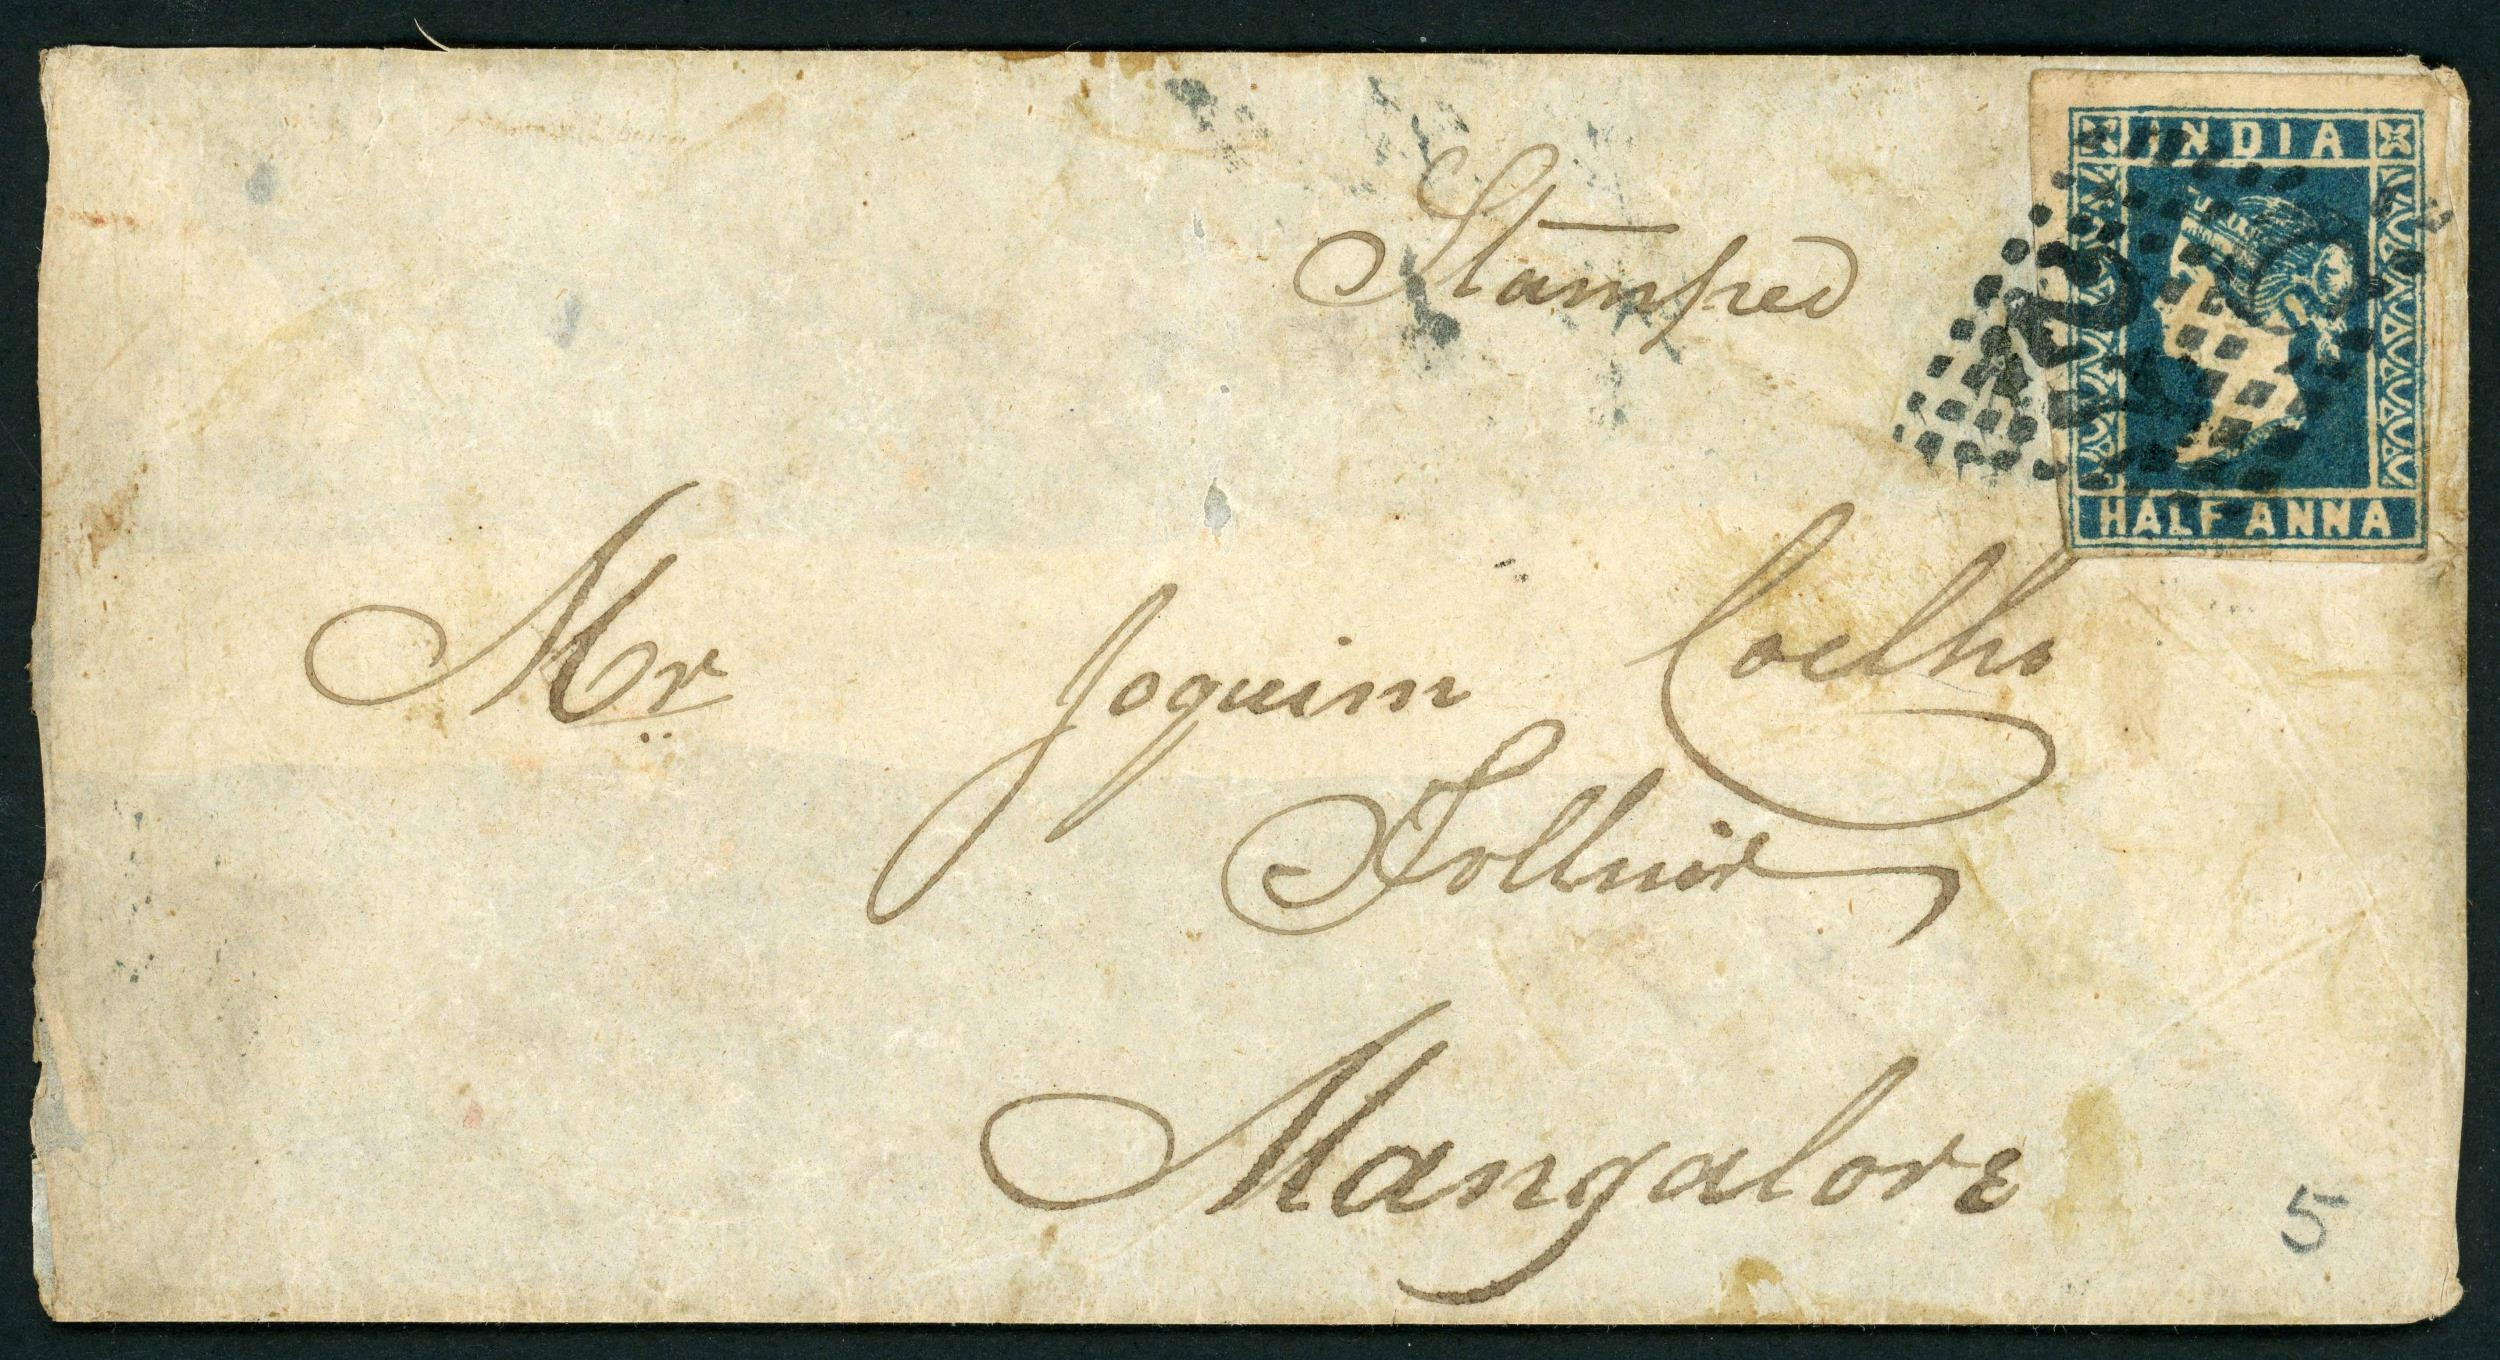 INDIA
HALF ANNA
Stamped
Mr Joquim Coelho
Mangalore
5